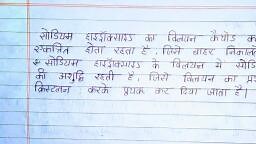 सोडियम हाइड्रॉक्साइड का विलयन कैथोड क
एकत्रित होता रहता है, जिसे बाहर निकाल
सोडियम हाइड्रॉक्साइड के विलयन में सोडि
की अशुद्धि रहती है, जिसे विलयन का प्र
क्रिस्टलन करके पृथक कर दिया जाता है।